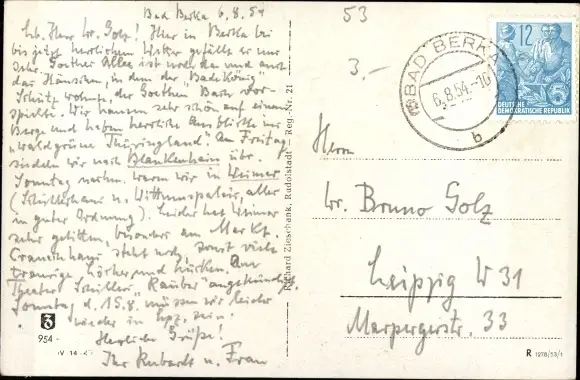 Bad Berka 6.8.54
Lb. Herr Dr. Golz! Hier in Berka bei
bis jetzt herrlichem Wetter gefällt es uns
sehr. Goethes Alles ist und auch
das Häuschen, in dem der "Badekönig"
Schütz wohnte, der Goethen Bach vor-
spielte. Wir hausen sehr schön auf einem
Berge und haben herrliche Ausblicke ins
"waldgrüne Thüringland". Am Freitag
sind wir nach Blankenhain
Sonntag nachm. waren wir in Weimar
(Schillerhaus u. Wittumspalais, alles
in guter Ordnung). Leider hat Weimar
sehr gelitten, besonders am Markt.
Cranachhaus steht noch, sonst viele
traurige Löcher und Lücken. Am
Theater Schillers "Räuber" angekündigt.
Sonntag d. 15.8. müssen wir leider
wieder in Lpz. sein.
Herzliche Grüße!
Ihr u. Frau
954 -
IV 14
Richard Zieschank, Rudolstadt — Reg.-Nr. 21
53
3.-
BAD BERKA
6.8.54.-10
b
12
DEUTSCHE
DEMOKRATISCHE REPUBLIK
Herrn
Dr. Bruno Golz
Leipzig W 31
Marpergerstr. 33
R 1278/53/1